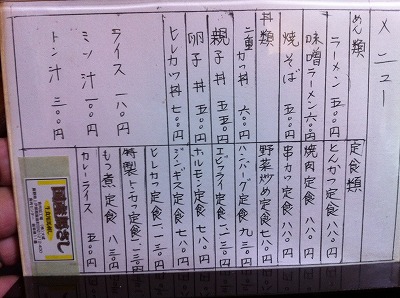 メニュー
めん類
ラーメン 五〇〇円
味噌ラーメン 六〇〇円
焼そば 五〇〇円
丼類
二重かつ丼 六〇〇円
親子丼 五五〇円
卵子丼 五〇〇円
ヒレカツ丼 七〇〇円
ライス 一八〇円
ミン汁 一〇〇円
トン汁 三〇〇円
定食類
とんかつ定食 八八〇円
焼肉定食 八八〇円
串カツ定食 八八〇円
野菜炒め定食 七八〇円
ハンバーグ定食 九三〇円
エビフライ定食 一、二三〇円
ホルモン定食 七八〇円
ジンギス定食 七八〇円
ヒレカツ定食 一、一三〇円
特製トンカツ定食 一、二三〇円
もつ煮定食 八三〇円
カレーライス 五〇〇円